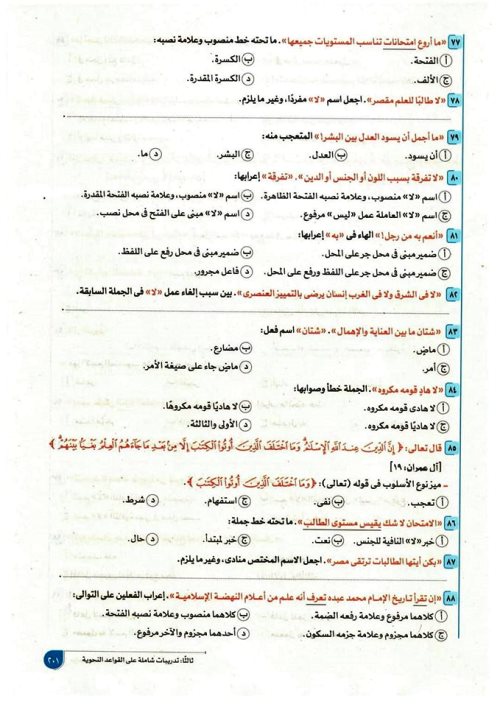 ٧٧ «ما أروع امتحانات تناسب المستويات جميعها». ما تحته خط منصوب وعلامة نصبه:
أ الفتحة. ب الكسرة.
ج الألف. د الكسرة المقدرة.
٧٨ «لا طالبًا للعلم مقصر». اجعل اسم «لا» مفردًا، وغير ما يلزم.
٧٩ «ما أجمل أن يسود العدل بين البشر!» المتعجب منه:
أ أن يسود. ب العدل. ج البشر. د ما.
٨٠ «لا تفرقة بسبب اللون أو الجنس أو الدين». «تفرقة» إعرابها:
أ اسم «لا» منصوب، وعلامة نصبه الفتحة الظاهرة. ب اسم «لا» منصوب، وعلامة نصبه الفتحة المقدرة.
ج اسم «لا» العاملة عمل «ليس» مرفوع. د اسم «لا» مبنى على الفتح فى محل نصب.
٨١ «أنعم به من رجل!» الهاء فى «به» إعرابها:
أ ضمير مبنى فى محل جر على المحل. ب ضمير مبنى فى محل رفع على اللفظ.
ج ضمير مبنى فى محل جر على اللفظ ورفع على المحل. د فاعل مجرور.
٨٢ «لا فى الشرق ولا فى الغرب إنسان يرضى بالتمييز العنصرى». بين سبب إلغاء عمل «لا» فى الجملة السابقة.
٨٣ «شتان ما بين العناية والإهمال». «شتان» اسم فعل:
أ ماضٍ. ب مضارع.
ج أمر. د ماضٍ جاء على صيغة الأمر.
٨٤ «لا هادٍ قومه مكروه». الجملة خطأ وصوابها:
أ لا هادى قومه مكروه. ب لا هاديًا قومه مكروهًا.
ج لا هاديًا قومه مكروه. د الأولى والثالثة.
٨٥ قال تعالى: ﴿ إِنَّ الدِّينَ عِندَ اللَّهِ الْإِسْلَامُ وَمَا اخْتَلَفَ الَّذِينَ أُوتُوا الْكِتَابَ إِلَّا مِن بَعْدِ مَا جَاءَهُمُ الْعِلْمُ بَغْيًا بَيْنَهُمْ ﴾
[آل عمران: ١٩]
- ميز نوع الأسلوب فى قوله (تعالى): ﴿ وَمَا اخْتَلَفَ الَّذِينَ أُوتُوا الْكِتَابَ ﴾.
أ تعجب. ب نفى. ج استفهام. د شرط.
٨٦ «الامتحان لا شك يقيس مستوى الطالب». ما تحته خط جملة:
أ خبر «لا» النافية للجنس. ب نعت. ج خبر لمبتدأ. د حال.
٨٧ «بكن أيتها الطالبات ترتقى مصر». اجعل الاسم المختص منادى، وغير ما يلزم.
٨٨ «إن تقرأ تاريخ الإمام محمد عبده تعرف أنه علم من أعلام النهضة الإسلامية». إعراب الفعلين على التوالى:
أ كلاهما مرفوع وعلامة رفعه الضمة. ب كلاهما منصوب وعلامة نصبه الفتحة.
ج كلاهما مجزوم وعلامة جزمه السكون. د أحدهما مجزوم والآخر مرفوع.
ثالثًا: تدريبات شاملة على القواعد النحوية ٢٠١